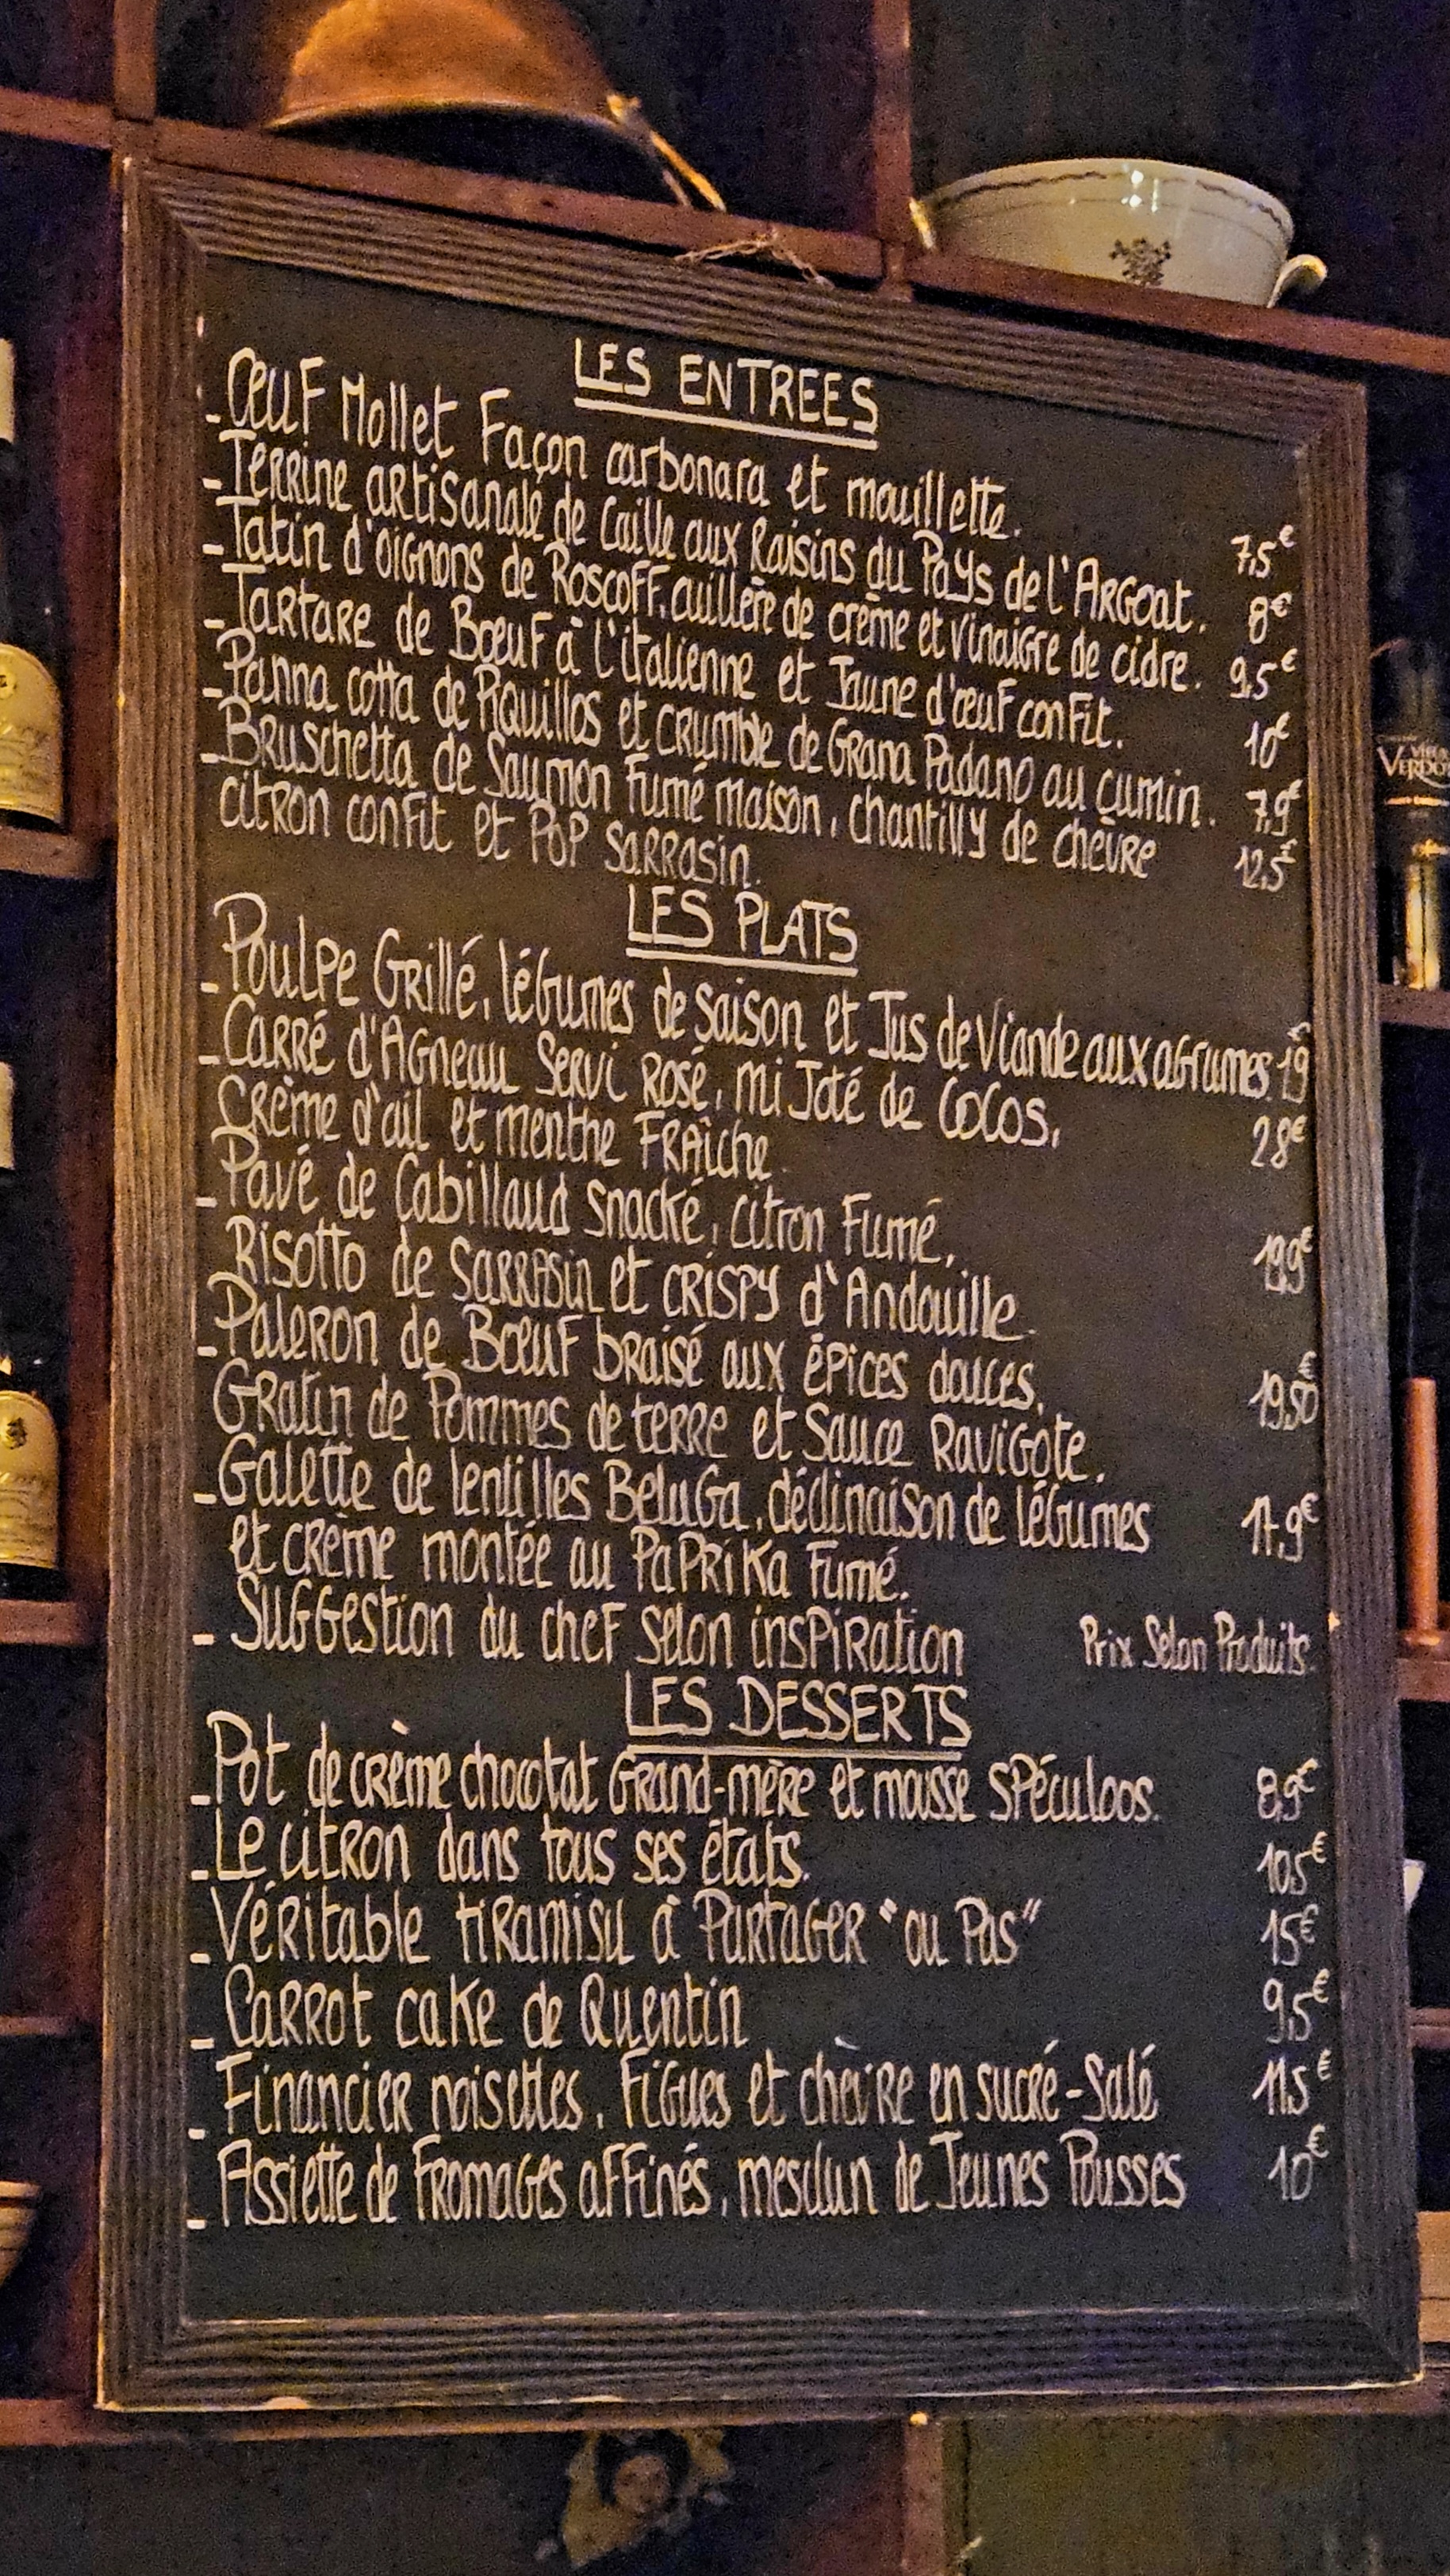 LES ENTREES
- Œuf Mollet Façon carbonara et mouillette. 7,5€
- Terrine artisanale de Caille aux Raisins du Pays de l'Argoat. 8€
- Tatin d'oignons de Roscoff, cuillère de crème et vinaigre de cidre. 9,5€
- Tartare de Bœuf à l'italienne et Jaune d'œuf confit. 10€
- Panna cotta de Piquillos et crumble de Grana Padano au cumin. 7,9€
- Bruschetta de Saumon Fumé maison, chantilly de chèvre 12,5€
citron confit et Pop Sarrasin.
LES PLATS
- Poulpe Grillé, légumes de saison et Jus de Viande aux agrumes. 19€
- Carré d'Agneau Servi Rosé, miJoté de Cocos, 28€
Crème d'ail et menthe Fraîche.
- Pavé de Cabillaud Snacké, citron Fumé, 19,9€
Risotto de Sarrasin et crispy d'Andouille.
- Paleron de Bœuf braisé aux épices douces, 19,50€
Gratin de Pommes de terre et Sauce Ravigote.
- Galette de lentilles Beluga, déclinaison de légumes 17,9€
et crème montée au Paprika Fumé.
- Suggestion du chef selon inspiration Prix Selon Produits.
LES DESSERTS
- Pot de crème chocolat Grand-mère et mousse Spéculoos. 8,9€
- Le citron dans tous ses états. 10,5€
- Véritable tiramisu à Partager "ou Pas" 15€
- Carrot cake de Quentin 9,5€
- Financier noisettes, Figues et chèvre en sucré-Salé 11,5€
- Assiette de Fromages affinés, mesclun de Jeunes Pousses 10€